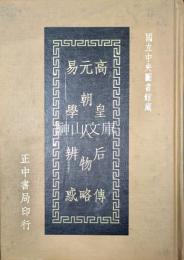 國立中央圖書館藏
高皇后傳
元朝人物略
易學辨惑
榊山文庫
正中書局印行